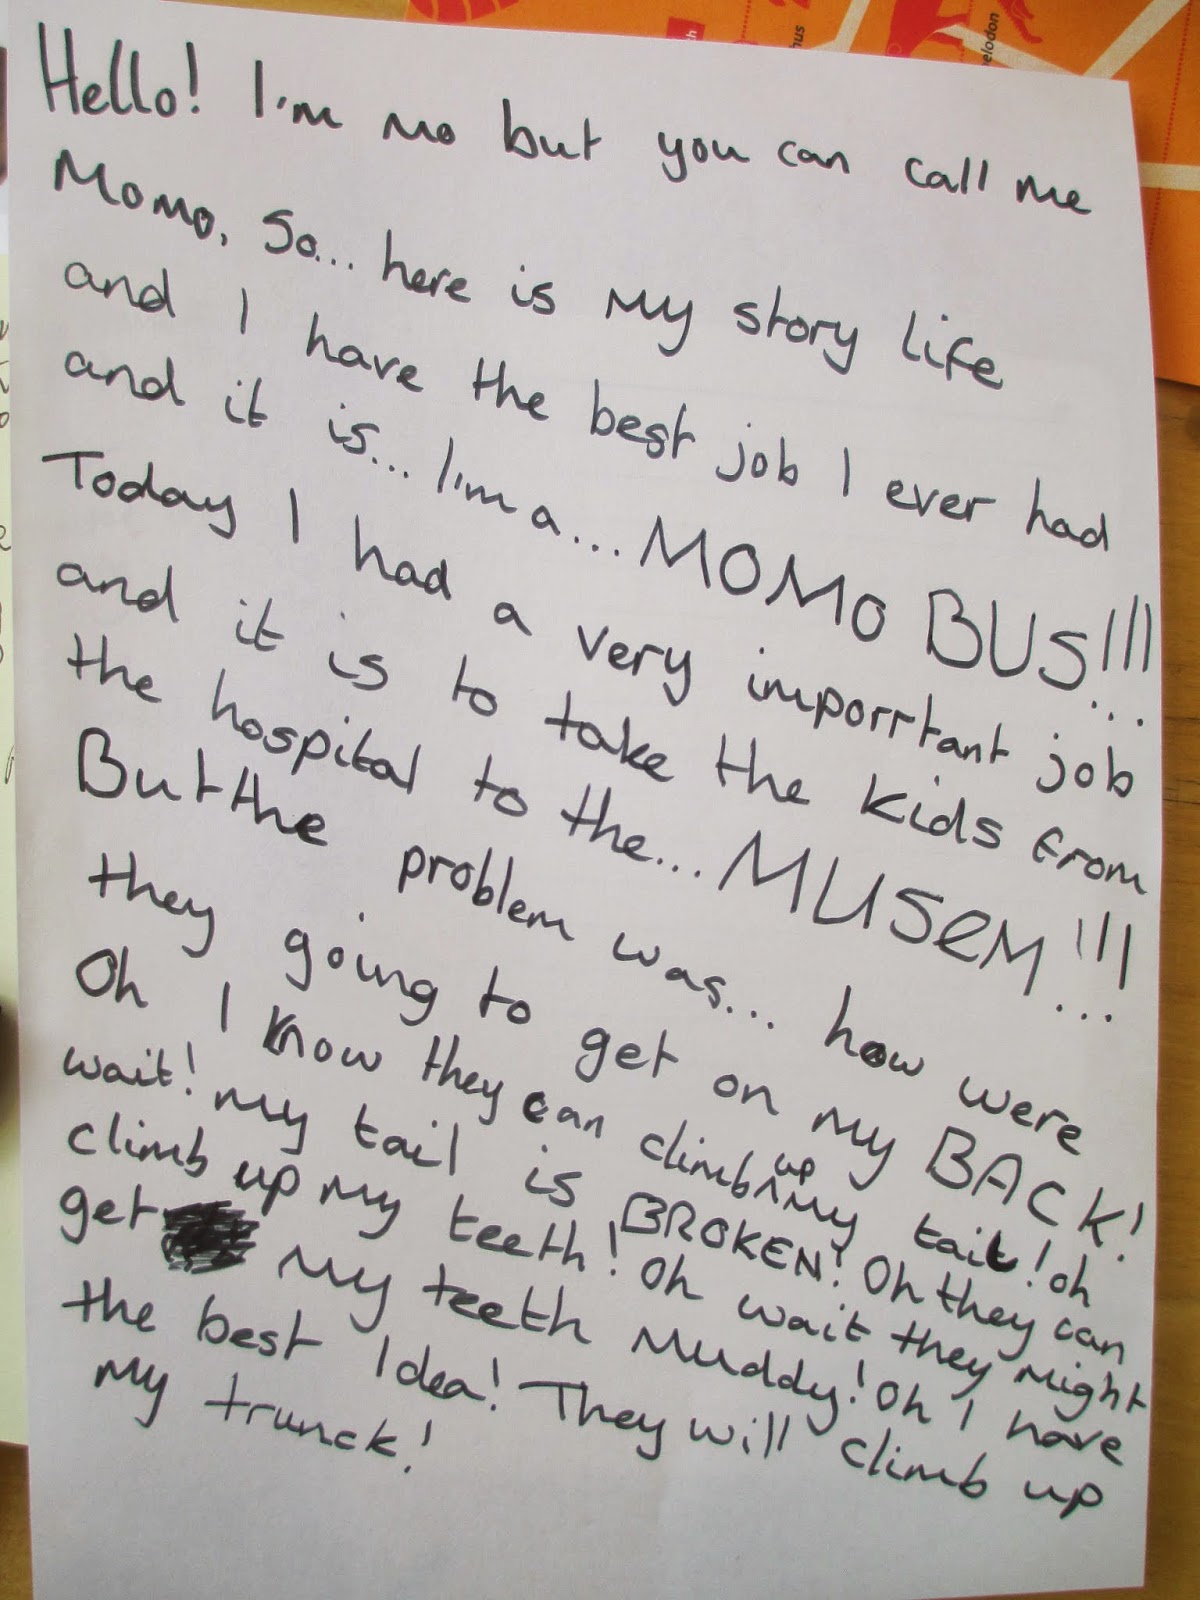 Hello! I'm Mo but you can call me
Momo, So... here is my story life
and I have the best job I ever had
and it is... I'm a... MOMO BUS!!!...
Today I had a very imporrtant job
and it is to take the kids from
the hospital to the... MUSEM!!!...
But the problem was... how were
they going to get on my BACK!
Oh I know they can climb up my tail! oh
wait! my tail is BROKEN! Oh they can
climb up my teeth! Oh wait they might
get my teeth muddy! Oh I have
the best Idea! They will climb up
my trunck!
elodon
hus